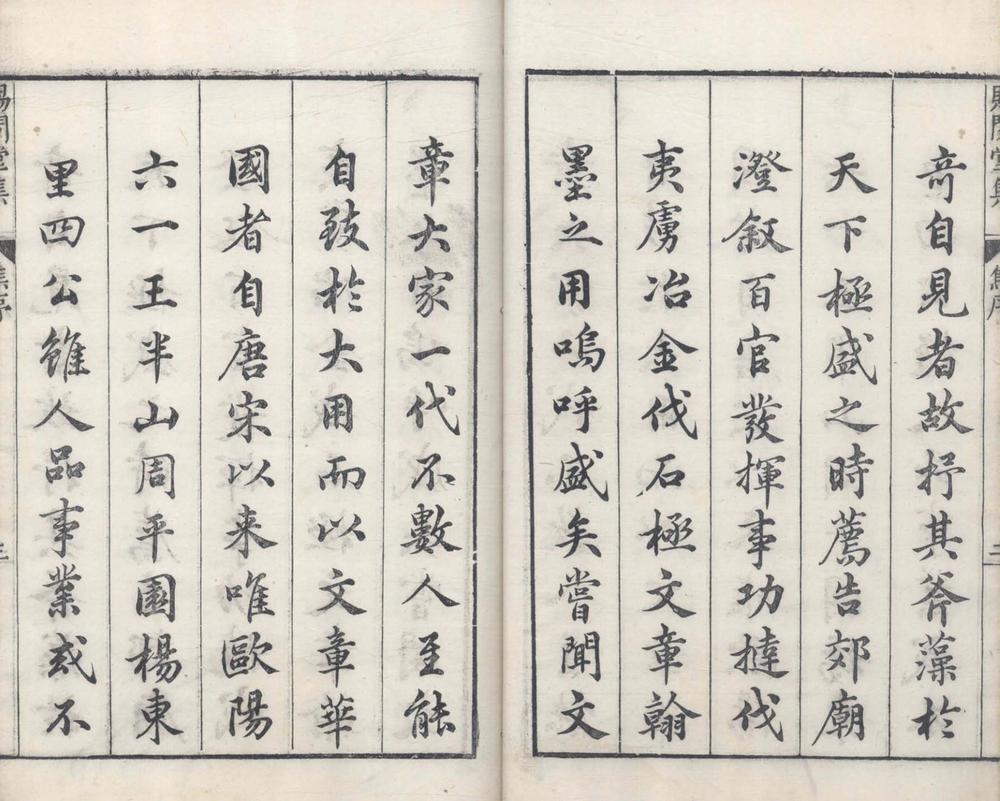 竒自見者故抒其斧藻於
天下極盛之時薦告郊廟
澄敘百官發揮事功撻伐
夷虜冶金伐石極文章翰
墨之用嗚呼盛矣嘗聞文
章大家一代不數人至能
自致於大用而以文章華
國者自唐宋以来唯歐陽
六一王半山周平園楊東
里四公雖人品事業或不
賜閒堂集
集序